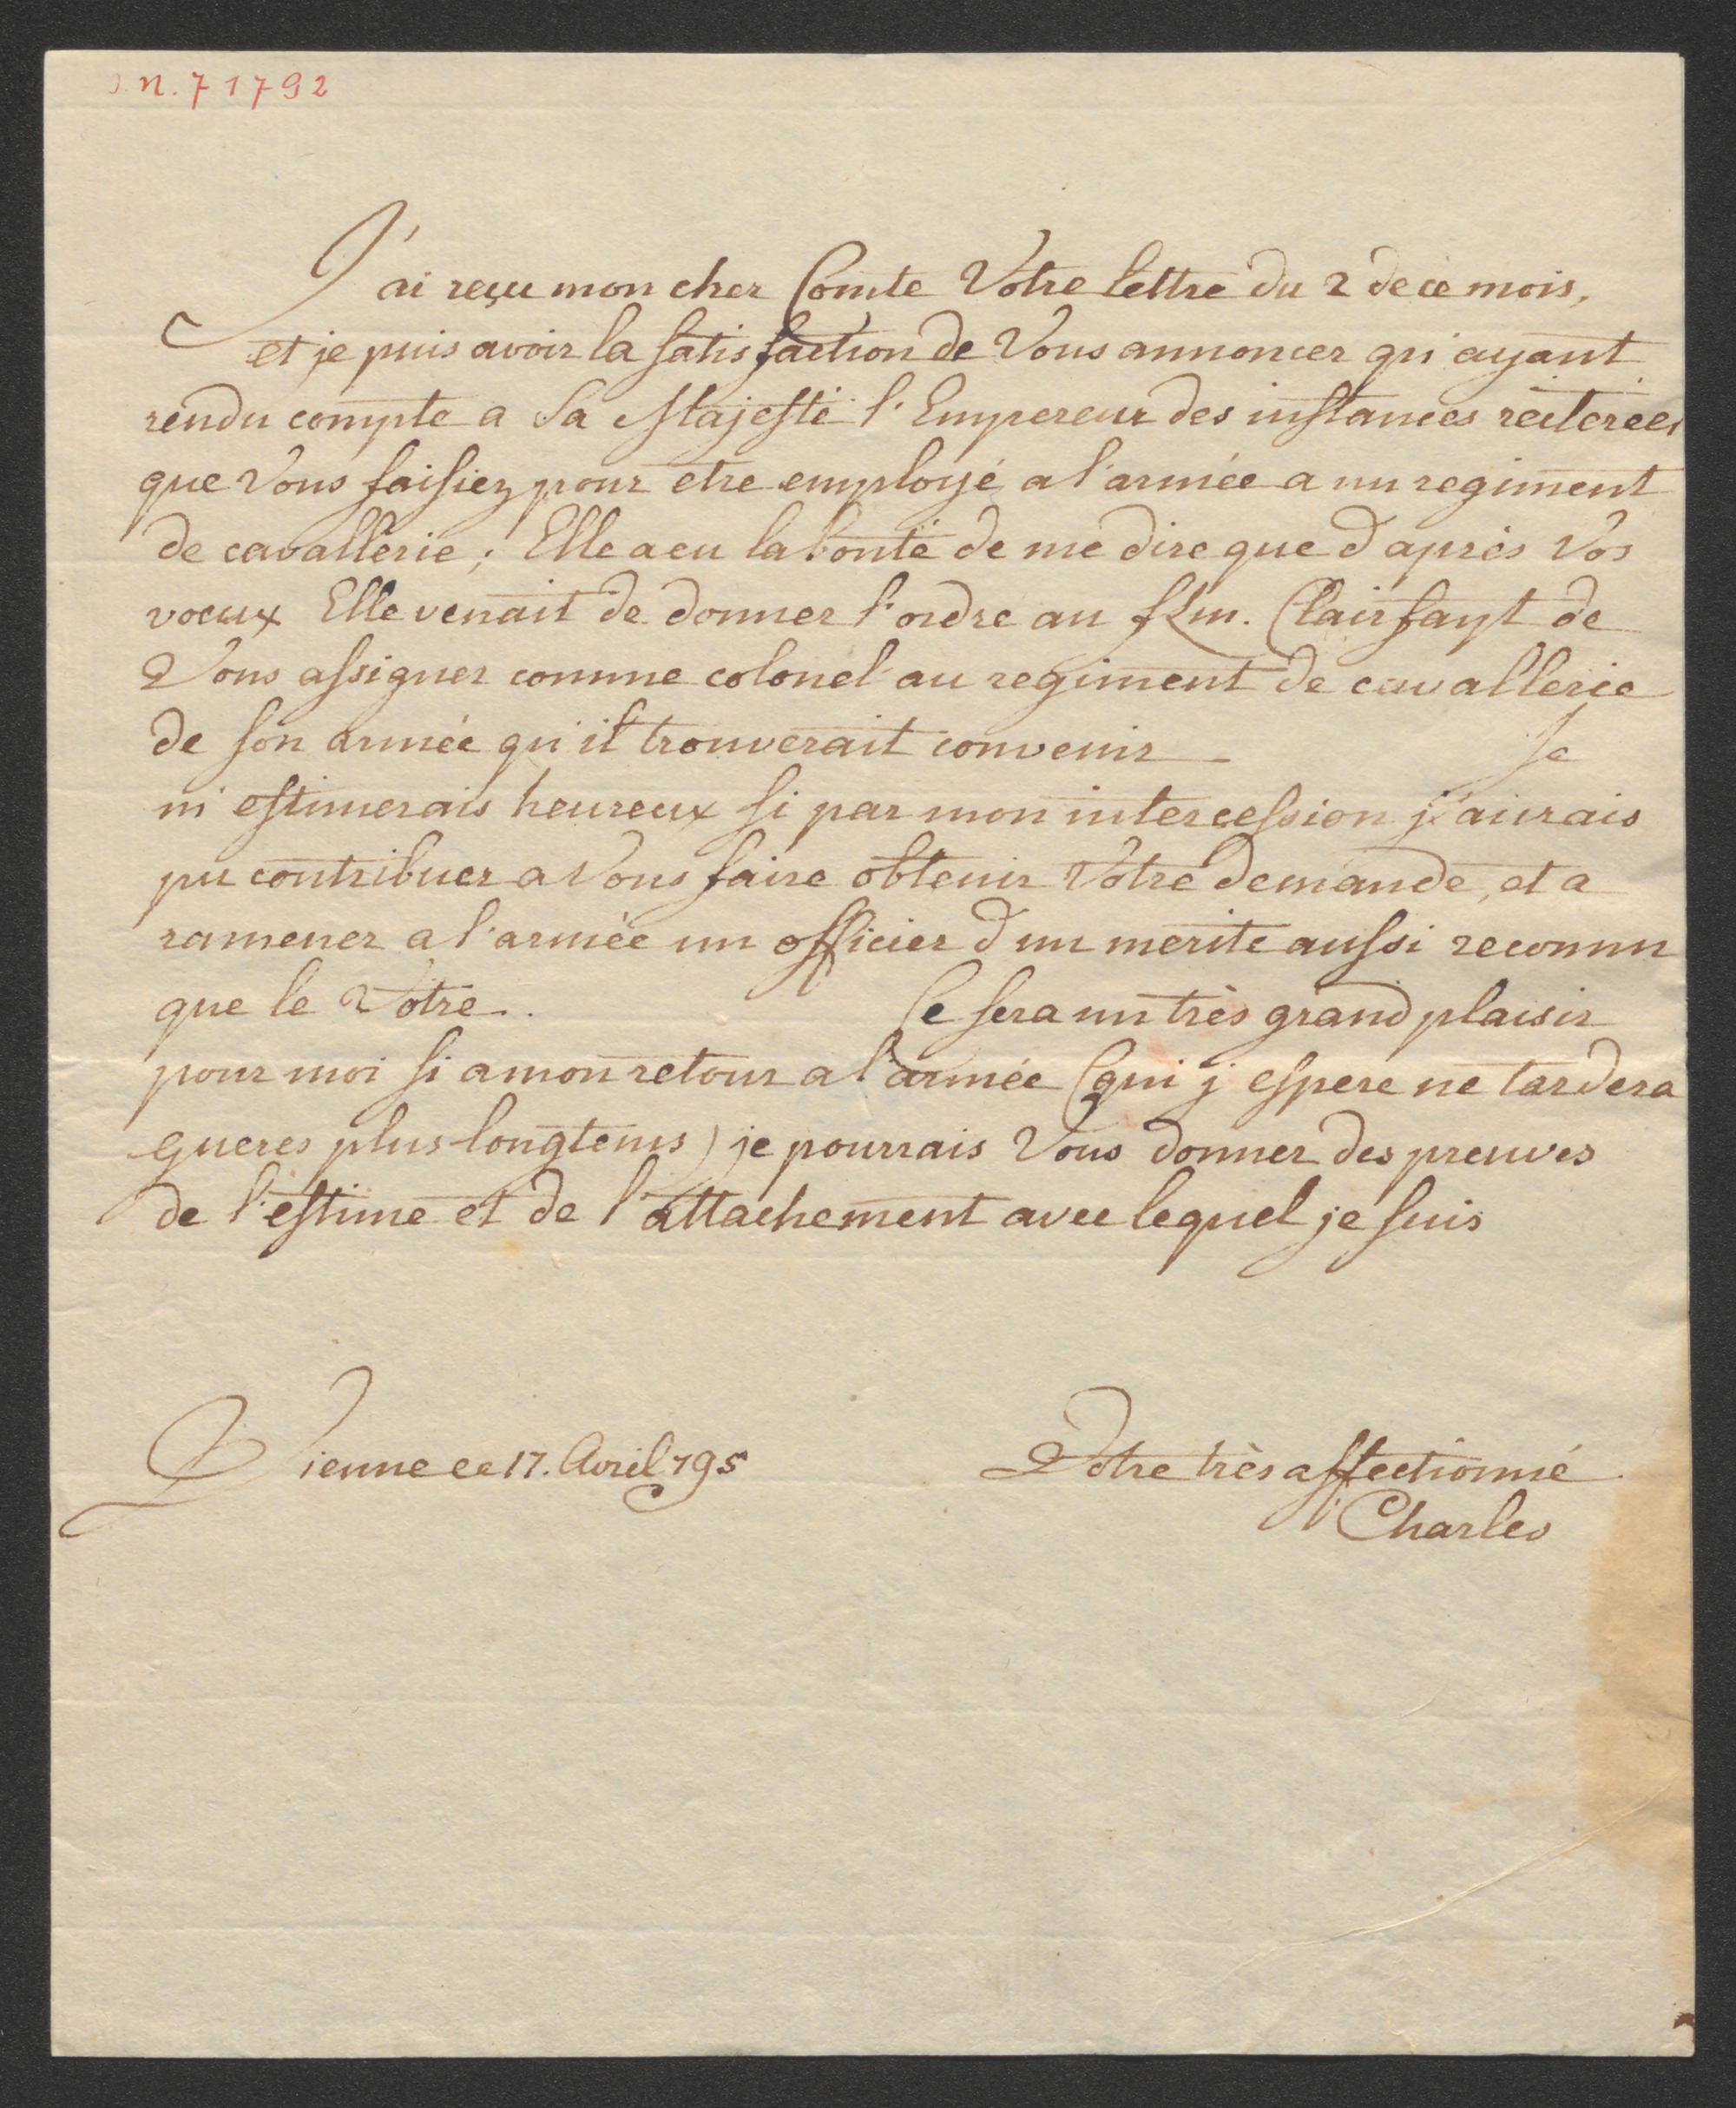 J. N. 71792
J'ai reçu mon cher Comte Votre lettre du 2 de ce mois,
et je puis avoir la satisfaction de Vous annoncer qu'ayant
rendu compte a Sa Majesté l'Empereur des instances réiterées
que Vous faisiez pour etre employé a l'armée a un regiment
de cavallerie; Elle a eu la bonté de me dire que d'après Vos
voeux Elle venait de donner l'ordre au fZm. Clairfayt de
Vous assigner comme colonel au regiment de cavallerie
de son armée qu'il trouverait convenir. Je
m'estimerais heureux si par mon intercession j'aurais
pu contribuer a Vous faire obtenir Votre demande, et a
ramener a l'armée un officier d'un merite aussi reconnu
que le Votre. Ce sera un très grand plaisir
pour moi si a mon retour a l'armée (qui j'espere ne tardera
gueres plus longtems) je pourrais Vous donner des preuves
de l'estime et de l'attachement avec lequel je suis
Vienne ce 17. Avril 795
Votre très affectionné
Charles